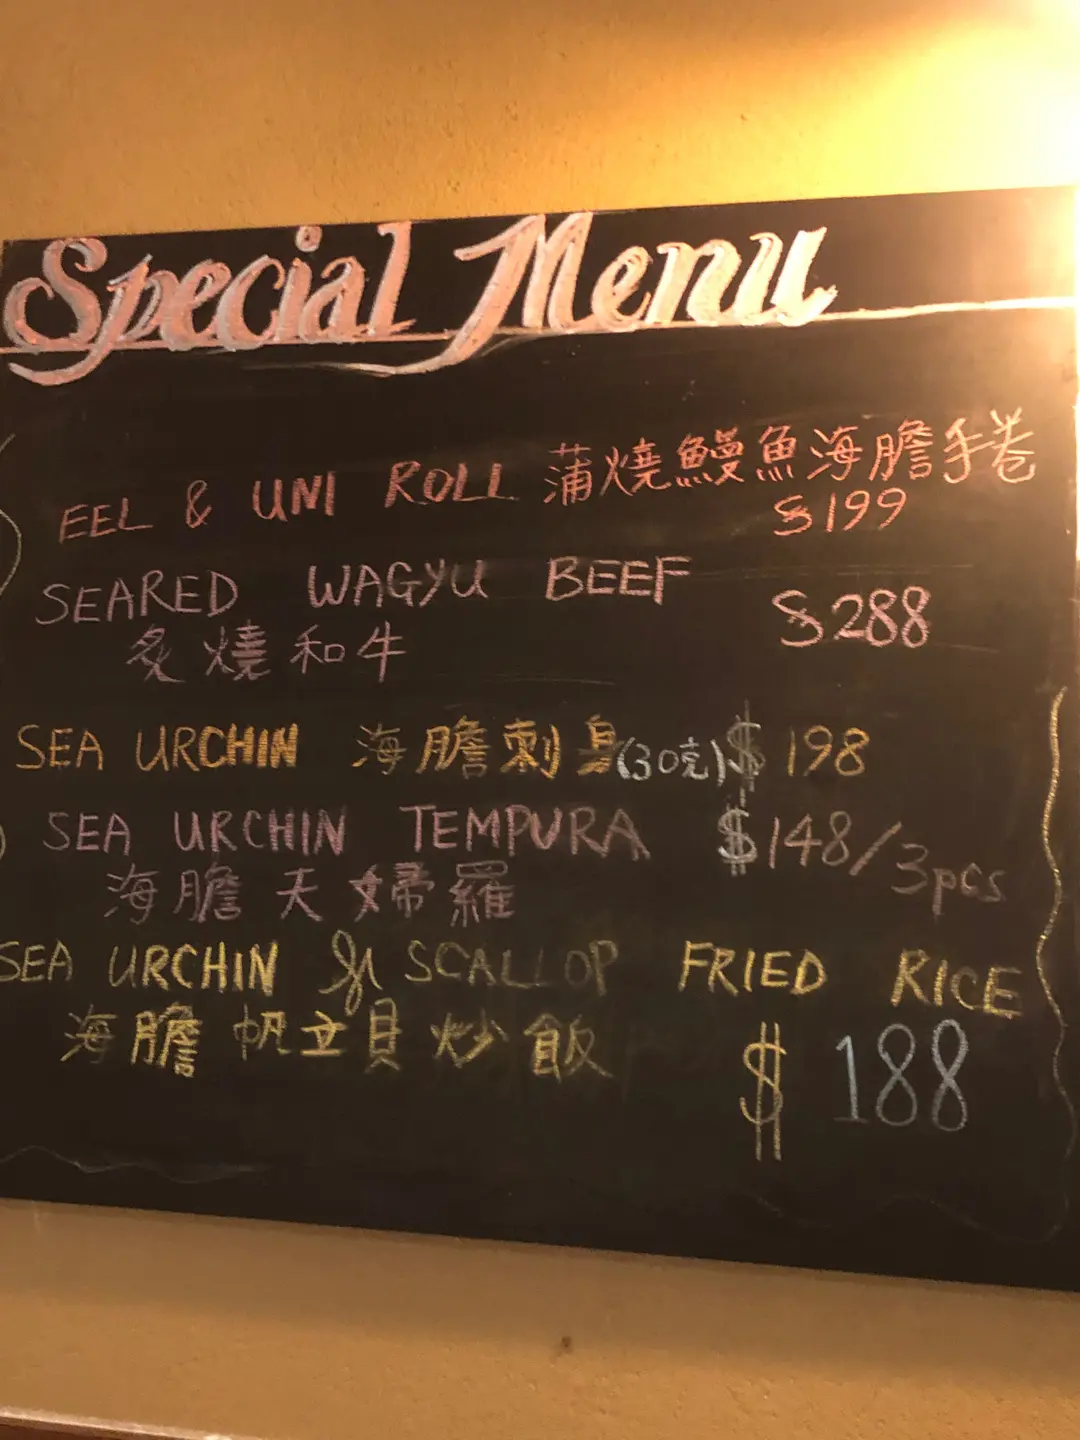 Special Menu
EEL & UNI ROLL 蒲燒鰻魚海膽手卷
$199
SEARED WAGYU BEEF $288
炙燒和牛
SEA URCHIN 海膽刺身(30克) $198
SEA URCHIN TEMPURA $148/3pcs
海膽天婦羅
SEA URCHIN & SCALLOP FRIED RICE
海膽帆立貝炒飯 $188